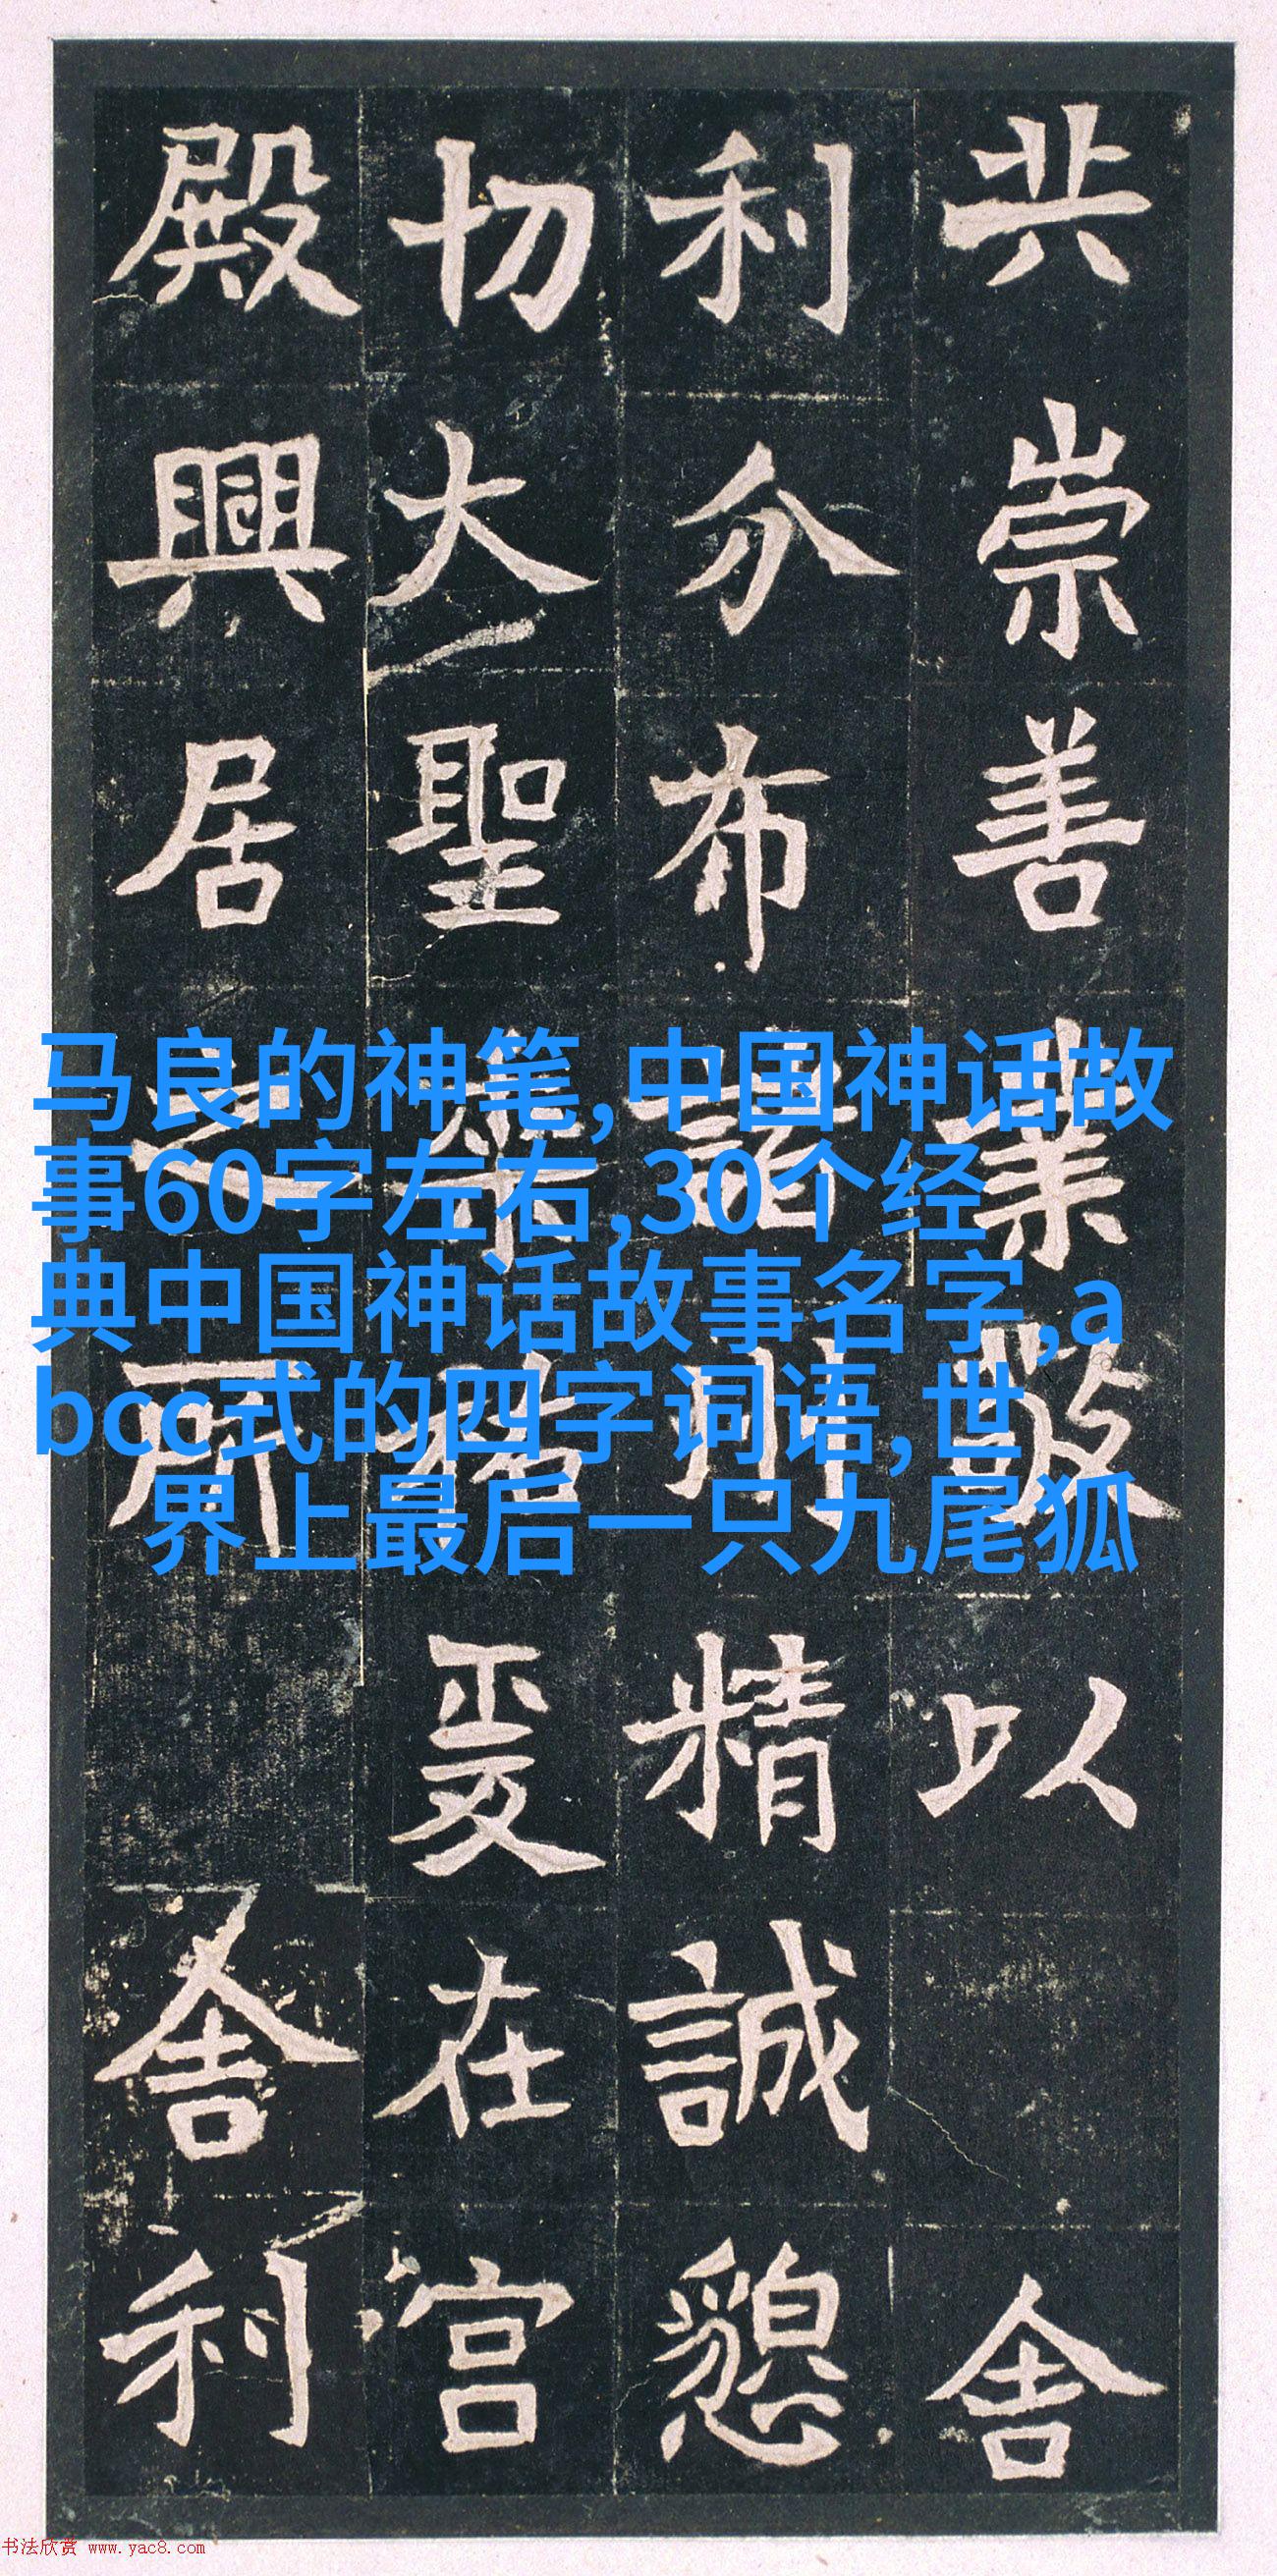 共崇善業敬以舍
利分布州精誠懇
切大聖爰在宫
殿興居之所舍利
马良的神笔,中国神话故
事60字左右,30个经
典中国神话故事名字,a
bcc式的四字词语,世
界上最后一只九尾狐
书法欣赏 www.yac8.com